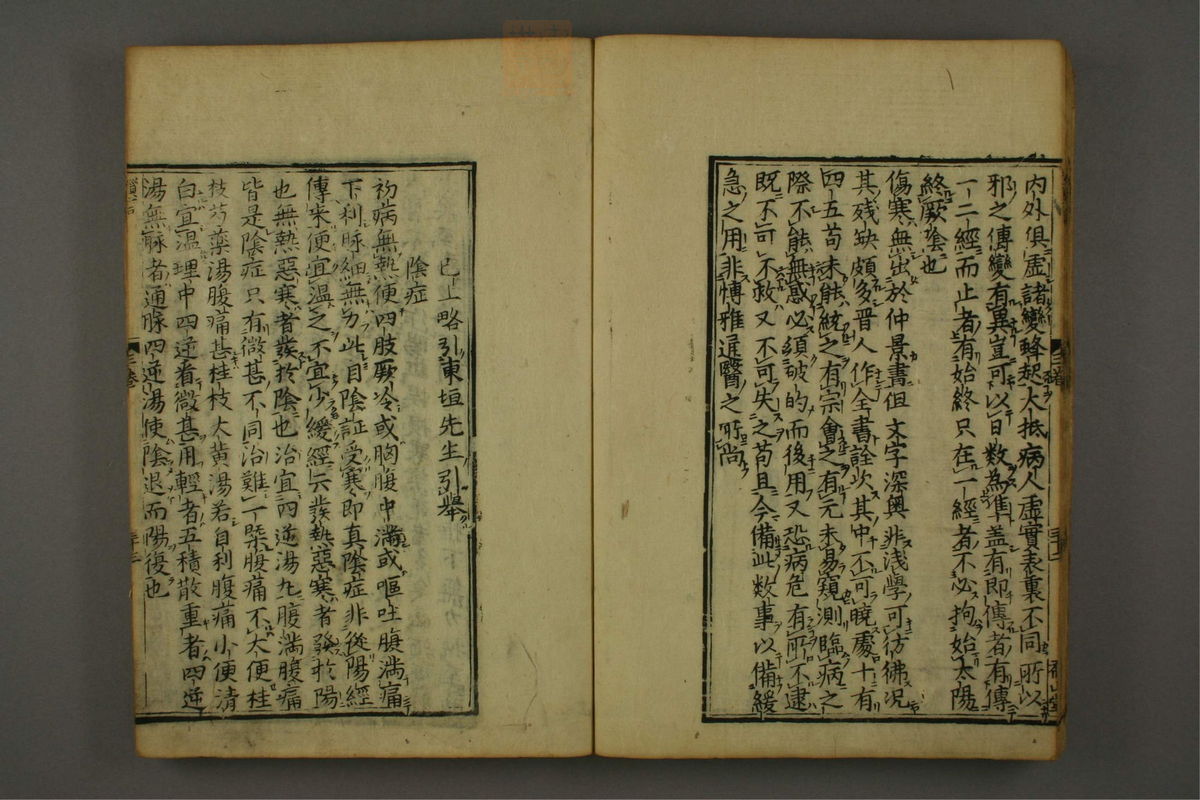 内外俱虛諸變蜂起大抵病人虛實表裏不同所以
邪之傳變有異豈可以日数為準盖有即傳者有傳
一二經而止者有始終只在一經者不必拘始太陽
終厥陰也
傷寒無出於仲景書但文字深奥非浅學可彷彿况
其残缺頗多晋人作全書詮次其中不可曉處十有
四五苟未能統之有宗會之有元未易窺測臨病之
際不能無惑必須破的而後用又恐病危有所不逮
既不可不救又不可失之苟且今備此数事以備緩
急之用非博雅進醫之所尚
已上略引東垣先生引舉
陰症
初病無熱便四肢厥冷或胸腹中滿或嘔吐腹満痛
下利脉細無力此自陰証受寒即真陰症非從陽經
傳来便宜温之不宜少緩經云發熱惡寒者發於陽
也無熱惡寒者發於陰也治宜四逆湯九腹満腹痛
皆是陰症只有微甚不同治難一槩腹痛不大便桂
枝芍藥湯腹痛甚桂枝大黄湯若自利腹痛小便清
白宜温理中四逆看微甚用輕者五積散重者四逆
湯無脉者通脉四逆湯使陰退而陽復也